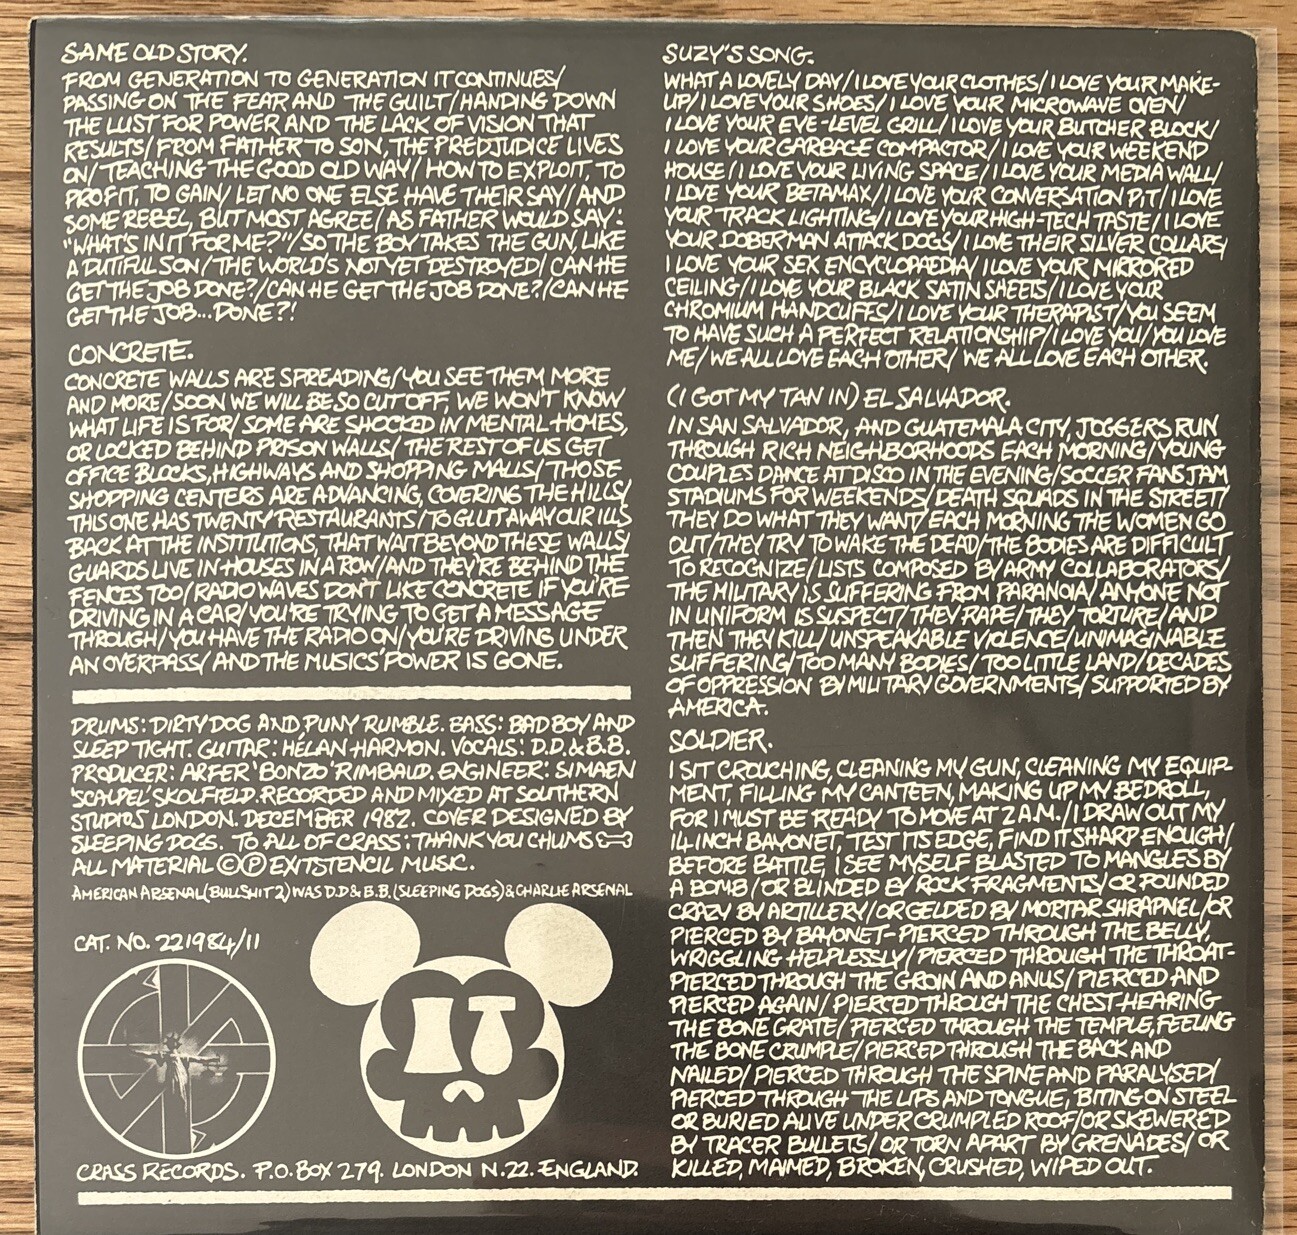 SAME OLD STORY.
FROM GENERATION TO GENERATION IT CONTINUES/
PASSING ON THE FEAR AND THE GUILT/HANDING DOWN
THE LUST FOR POWER AND THE LACK OF VISION THAT
RESULTS/FROM FATHER TO SON, THE PREDJUDICE LIVES
ON/TEACHING THE GOOD OLD WAY/HOW TO EXPLOIT, TO
PROFIT, TO GAIN/LET NO ONE ELSE HAVE THEIR SAY/AND
SOME REBEL, BUT MOST AGREE/AS FATHER WOULD SAY:
"WHAT'S IN IT FOR ME?"/SO THE BOY TAKES THE GUN, LIKE
A DUTIFUL SON/THE WORLD'S NOT YET DESTROYED/CAN HE
GET THE JOB DONE?/CAN HE GET THE JOB DONE?/CAN HE
GET THE JOB...DONE?!
CONCRETE.
CONCRETE WALLS ARE SPREADING/YOU SEE THEM MORE
AND MORE/SOON WE WILL BE SO CUT OFF, WE WON'T KNOW
WHAT LIFE IS FOR/SOME ARE SHOCKED IN MENTAL-HOMES,
OR LOCKED BEHIND PRISON WALLS/THE REST OF US GET
OFFICE BLOCKS, HIGHWAYS AND SHOPPING MALLS/THOSE
SHOPPING CENTERS ARE ADVANCING, COVERING THE HILLS/
THIS ONE HAS TWENTY RESTAURANTS/TO GLUT AWAY OUR ILLS
BACK AT THE INSTITUTIONS, THAT WAIT BEYOND THESE WALLS/
GUARDS LIVE IN HOUSES IN A ROW/AND THEY'RE BEHIND THE
FENCES TOO/RADIO WAVES DON'T LIKE CONCRETE IF YOU'RE
DRIVING IN A CAR/YOU'RE TRYING TO GET A MESSAGE
THROUGH/YOU HAVE THE RADIO ON/YOU'RE DRIVING UNDER
AN OVERPASS/AND THE MUSICS' POWER IS GONE.
DRUMS: DIRTY DOG AND, PUNY RUMBLE. BASS: BAD BOY AND
SLEEP TIGHT. GUITAR: HELAN-HARMON. VOCALS: D.D.& B.B.
PRODUCER: ARFER 'BONZO' RIMBAUD. ENGINEER: SIMAEN
'SCALPEL' SKOLFIELD. RECORDED AND MIXED AT SOUTHERN
STUDIOS LONDON. DECEMBER 1982. COVER DESIGNED BY
SLEEPING DOGS. TO ALL OF CRASS: THANK YOU CHUMS
ALL MATERIAL ©℗ EXITSTENCIL MUSIC.
AMERICAN ARSENAL (BULLSHIT 2) WAS D.D & B.B. (SLEEPING DOGS) & CHARLIE ARSENAL
CAT. NO. 221984/11
CRASS RECORDS. P.O. BOX 279. LONDON N.22. ENGLAND.
SUZY'S SONG.
WHAT A LOVELY DAY/I LOVE YOUR CLOTHES/I LOVE YOUR MAKE-
UP/I LOVE YOUR SHOES/I LOVE YOUR MICROWAVE OVEN/
I LOVE YOUR EYE-LEVEL GRILL/I LOVE YOUR BUTCHER BLOCK/
I LOVE YOUR GARBAGE COMPACTOR/I LOVE YOUR WEEKEND
HOUSE/I LOVE YOUR LIVING SPACE/I LOVE YOUR MEDIA WALL/
I LOVE YOUR BETAMAX/I LOVE YOUR CONVERSATION PIT/I LOVE
YOUR TRACK LIGHTING/I LOVE YOUR HIGH-TECH TASTE/I LOVE
YOUR DOBERMAN ATTACK DOGS/I LOVE THEIR SILVER COLLARS/
I LOVE YOUR SEX ENCYCLOPAEDIA/I LOVE YOUR MIRRORED
CEILING/I LOVE YOUR BLACK SATIN SHEETS/I LOVE YOUR
CHROMIUM HANDCUFFS/I LOVE YOUR THERAPIST/YOU SEEM
TO HAVE SUCH A PERFECT RELATIONSHIP/I LOVE YOU/YOU LOVE
ME/WE ALL LOVE EACH OTHER/WE ALL LOVE EACH OTHER.
(I GOT MY TAN IN) EL SALVADOR.
IN SAN SALVADOR, AND GUATEMALA CITY, JOGGERS RUN
THROUGH RICH NEIGHBORHOODS EACH MORNING/YOUNG
COUPLES DANCE AT DISCO IN THE EVENING/SOCCER FANS JAM
STADIUMS FOR WEEKENDS/DEATH SQUADS IN THE STREET/
THEY DO WHAT THEY WANT/EACH MORNING THE WOMEN GO
OUT/THEY TRY TO WAKE THE DEAD/THE BODIES ARE DIFFICULT
TO RECOGNIZE/LISTS COMPOSED BY ARMY COLLABORATORS/
THE MILITARY IS SUFFERING FROM PARANOIA/ANYONE NOT
IN UNIFORM IS SUSPECT/THEY RAPE/THEY TORTURE/AND
THEN THEY KILL/UNSPEAKABLE VIOLENCE/UNIMAGINABLE
SUFFERING/TOO MANY BODIES/TOO LITTLE LAND/DECADES
OF OPPRESSION BY MILITARY GOVERNMENTS/SUPPORTED BY
AMERICA.
SOLDIER.
I SIT CROUCHING, CLEANING MY GUN, CLEANING MY EQUIP-
MENT, FILLING MY CANTEEN, MAKING UP MY BEDROLL,
FOR I MUST BE READY TO MOVE AT 2 A.M./I DRAW OUT MY
14 INCH BAYONET, TEST ITS EDGE, FIND IT SHARP ENOUGH/
BEFORE BATTLE, I SEE MYSELF BLASTED TO MANGLES BY
A BOMB/OR BLINDED BY ROCK FRAGMENTS/OR POUNDED
CRAZY BY ARTILLERY/OR GELDED BY MORTAR SHRAPNEL/OR
PIERCED BY BAYONET-PIERCED THROUGH THE BELLY,
WRIGGLING HELPLESSLY/PIERCED THROUGH THE THROAT-
PIERCED THROUGH THE GROIN AND ANUS/PIERCED AND
PIERCED AGAIN/PIERCED THROUGH THE CHEST-HEARING
THE BONE GRATE/PIERCED THROUGH THE TEMPLE, FEELING
THE BONE CRUMPLE/PIERCED THROUGH THE BACK AND
NAILED/PIERCED THROUGH THE SPINE AND PARALYSED/
PIERCED THROUGH THE LIPS AND TONGUE, BITING ON STEEL
OR BURIED ALIVE UNDER CRUMPLED ROOF/OR SKEWERED
BY TRACER BULLETS/OR TORN APART BY GRENADES/OR
KILLED, MAIMED, BROKEN, CRUSHED, WIPED OUT.